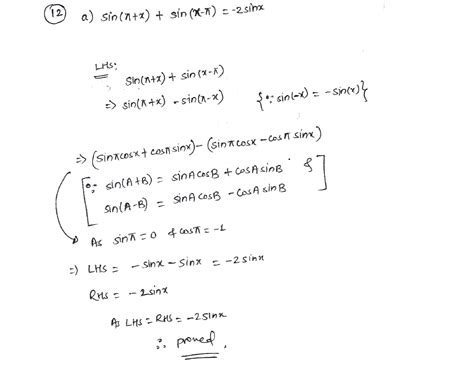 (12) a) sin(π+x) + sin(x-π) = -2sinx
LHS:
sin(π+x) + sin(x-π)
=> sin(π+x) - sin(π-x) {∵ sin(-x) = -sin(x)}
=> (sinπcosx + cosπsinx) - (sinπcosx - cosπsinx)
[∵ sin(A+B) = sinAcosB + cosAsinB &
sin(A-B) = sinAcosB - cosAsinB]
As sinπ = 0 & cosπ = -1
=) LHS = -sinx - sinx = -2sinx
RHS = -2sinx
As LHS = RHS = -2sinx
∴ proved.